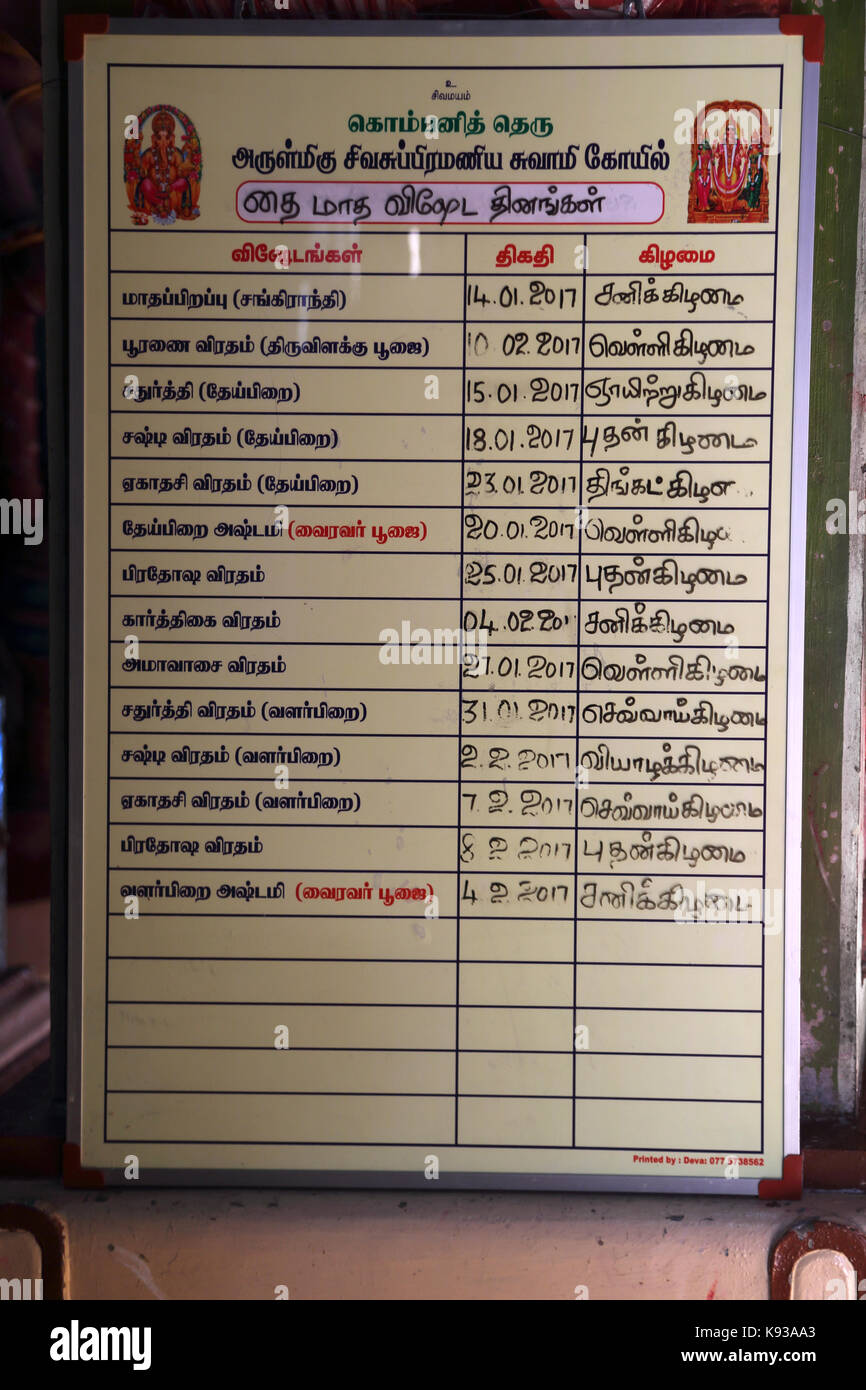 உ
சிவமயம்
கொம்பனித் தெரு
அருள்மிகு சிவசுப்பிரமணிய சுவாமி கோயில்
தை மாத விஷேட தினங்கள்
விஷேடங்கள் திகதி கிழமை
மாதப்பிறப்பு (சங்கிராந்தி) 14.01.2017 சனிக்கிழமை
பூரணை விரதம் (திருவிளக்கு பூஜை) 10 02.2017 வெள்ளிகிழமை
சதுர்த்தி (தேய்பிறை) 15.01.2017 ஞாயிற்றுகிழமை
சஷ்டி விரதம் (தேய்பிறை) 18.01.2017 புதன் கிழமை
ஏகாதசி விரதம் (தேய்பிறை) 23.01.2017 திங்கட்கிழ
தேய்பிறை அஷ்டமி (வைரவர் பூஜை) 20.01.2017 வெள்ளிகிழ
பிரதோஷ விரதம் 25.01.2017 புதன்கிழமை
கார்த்திகை விரதம் 04.02.201 சனிக்கிழமை
அமாவாசை விரதம் 27.01.2017 வெள்ளிகிழமை
சதுர்த்தி விரதம் (வளர்பிறை) 31.01.2017 செவ்வாய்கிழமை
சஷ்டி விரதம் (வளர்பிறை) 2.2.2017 வியாழக்கிழமை
ஏகாதசி விரதம் (வளர்பிறை) 7.2.2017 செவ்வாய்கிழமை
பிரதோஷ விரதம் 8 2 2017 புதன்கிழமை
வளர்பிறை அஷ்டமி (வைரவர் பூஜை) 4 2 2017 சனிக்கிழமை
Printed by : Deva: 077 5738562
alamy stock photo
K93AA3
www.alamy.com